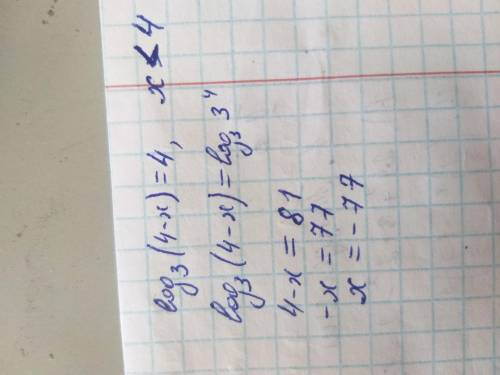 log₃(4-x)=4, x<4
log₃(4-x)=log₃3⁴
4-x=81
-x=77
x=-77